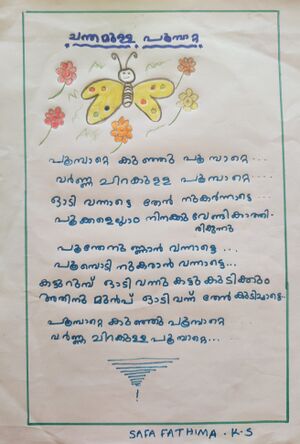 ചന്തമുള്ള പൂമ്പാറ്റ
പൂമ്പാറ്റെ കുഞ്ഞു പൂമ്പാറ്റെ...
വർണ്ണ ചിറകുള്ള പൂമ്പാറ്റെ....
ഓടി വന്നാട്ടെ തേൻ നുകർന്നാട്ടെ
പൂക്കളെല്ലാം നിനക്കു വേണ്ടി കാത്തി-
രിക്കുന്നു
പൂന്തേനുണ്ണാൻ വന്നാട്ടെ...
പൂമ്പൊടി നുകരാൻ വന്നാട്ടെ...
കട്ടുറുമ്പ് ഓടി വന്നു കട്ടു കുടിക്കും
അതിനു മുൻപ് ഓടി വന്ന് തേൻ കുടിച്ചാട്ടെ..
പൂമ്പാറ്റെ കുഞ്ഞു പൂമ്പാറ്റെ
വർണ്ണ ചിറകുള്ള പൂമ്പാറ്റെ...
SAFA FATHIMA . K.S